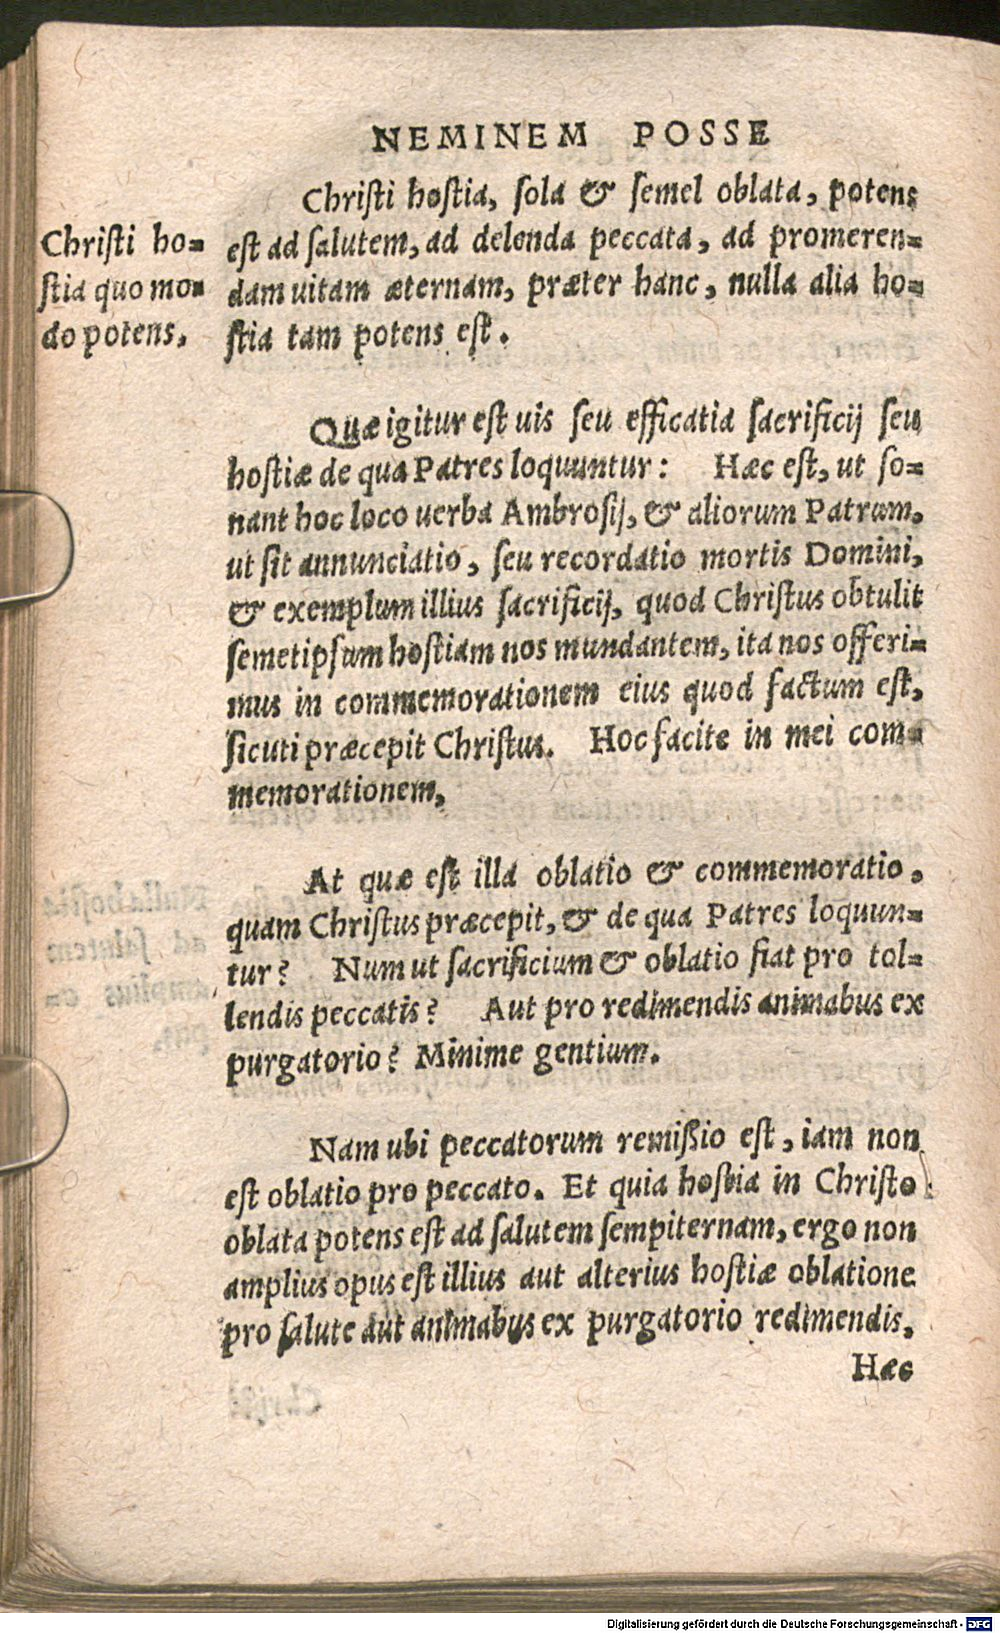 NEMINEM POSSE
Christi hostia, sola & semel oblata, potens
est ad salutem, ad delenda peccata, ad promeren=
dam uitam æternam, præter hanc, nulla alia ho=
stia tam potens est.
Christi ho=
stia quo mo=
do potens.
Quæ igitur est uis seu efficatia sacrificij seu
hostiæ de qua Patres loquuntur: Hæc est, ut so=
nant hoc loco uerba Ambrosij, & aliorum Patrum,
ut sit annunciatio, seu recordatio mortis Domini,
& exemplum illius sacrificij, quod Christus obtulit
semetipsum hostiam nos mundantem, ita nos offeri=
mus in commemorationem eius quod factum est,
sicuti præcepit Christus. Hoc facite in mei com=
memorationem.
At quæ est illa oblatio & commemoratio,
quam Christus præcepit, & de qua Patres loquun=
tur? Num ut sacrificium & oblatio fiat pro tol=
lendis peccatis? Aut pro redimendis animabus ex
purgatorio? Minime gentium.
Nam ubi peccatorum remißio est, iam non
est oblatio pro peccato. Et quia hostia in Christo
oblata potens est ad salutem sempiternam, ergo non
amplius opus est illius aut alterius hostiæ oblatione
pro salute aut animabus ex purgatorio redimendis.
Hæc
Digitalisierung gefördert durch die Deutsche Forschungsgemeinschaft - DFG